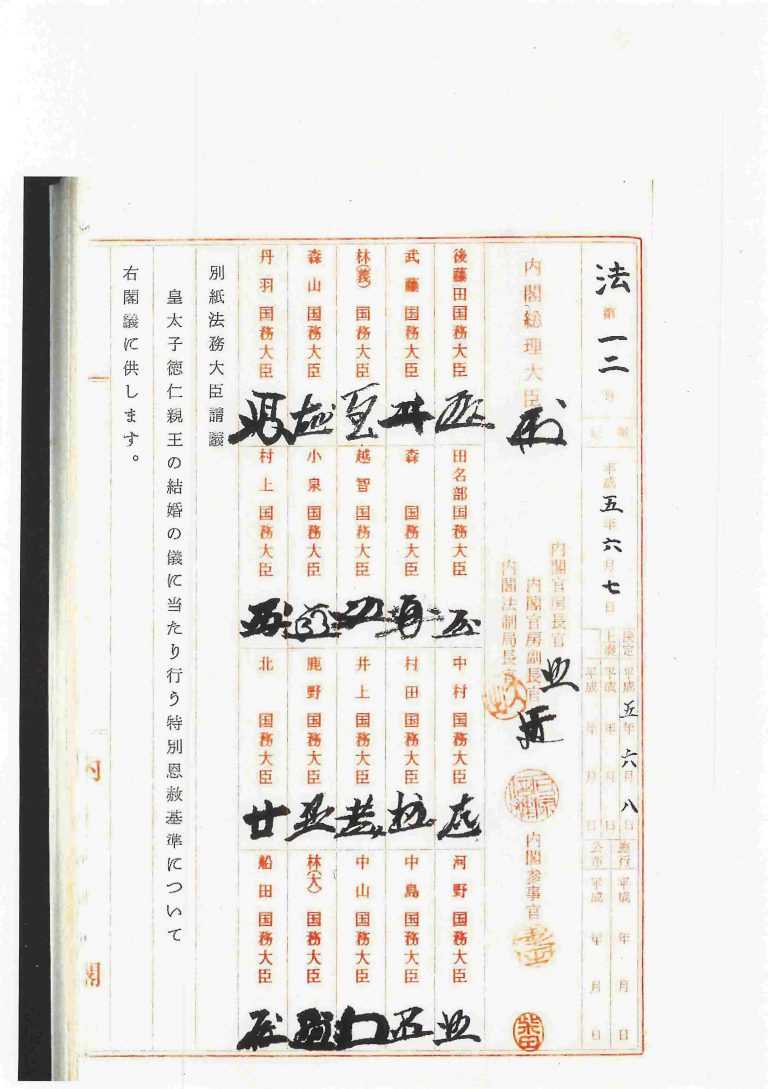 法第一二号
平成五年六月七日
決定 平成五年六月八日
上奏 平成 年 月 日
施行 平成 年 月 日
公布 平成 年 月 日
内閣総理大臣
内閣官房長官
内閣官房副長官
内閣法制局長官
内閣参事官
柴田
後藤田国務大臣
田名部国務大臣
中村国務大臣
河野国務大臣
武藤国務大臣
森国務大臣
村田国務大臣
中島国務大臣
林(義)国務大臣
越智国務大臣
井上国務大臣
中山国務大臣
森山国務大臣
小泉国務大臣
鹿野国務大臣
林(大)国務大臣
丹羽国務大臣
村上国務大臣
北国務大臣
船田国務大臣
別紙法務大臣請議
皇太子徳仁親王の結婚の儀に当たり行う特別恩赦基準について
右閣議に供します。
内閣